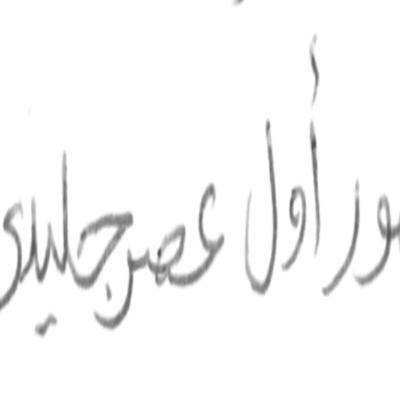 ور أول عصر جليدي